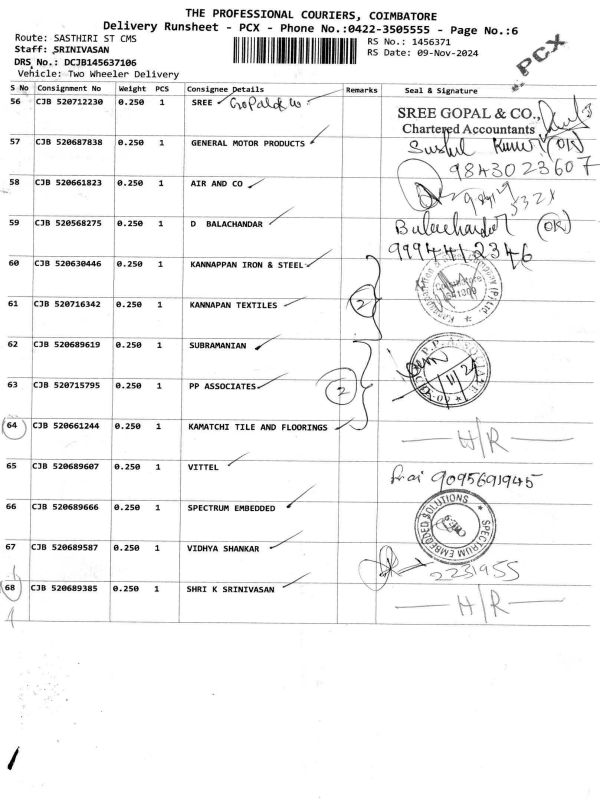 THE PROFESSIONAL COURIERS, COIMBATORE
Delivery Runsheet - PCX - Phone No.:0422-3505555 - Page No.:6
Route: SASTHIRI ST CMS
RS No.: 1456371
Staff: SRINIVASAN
RS Date: 09-Nov-2024
DRS No.: DCJB145637106
Vehicle: Two Wheeler Delivery
PCX
S No Consignment No Weight PCS Consignee Details Remarks Seal & Signature
56 CJB 520712230 0.250 1 SREE Gopal & co. SREE GOPAL & CO., Chartered Accountants
57 CJB 520687838 0.250 1 GENERAL MOTOR PRODUCTS Sushil Kumar (OK) 9843023607
58 CJB 520661823 0.250 1 AIR AND CO
59 CJB 520568275 0.250 1 D BALACHANDAR Balachandar (OK) 9994412346
60 CJB 520630446 0.250 1 KANNAPPAN IRON & STEEL
2
61 CJB 520716342 0.250 1 KANNAPAN TEXTILES
62 CJB 520689619 0.250 1 SUBRAMANIAN
2
63 CJB 520715795 0.250 1 PP ASSOCIATES
64 CJB 520661244 0.250 1 KAMATCHI TILE AND FLOORINGS H/R
65 CJB 520689607 0.250 1 VITTEL 9095691945
66 CJB 520689666 0.250 1 SPECTRUM EMBEDDED SPECTRUM EMBEDDED SOLUTIONS
67 CJB 520689587 0.250 1 VIDHYA SHANKAR 2231955
68 CJB 520689385 0.250 1 SHRI K SRINIVASAN H/R